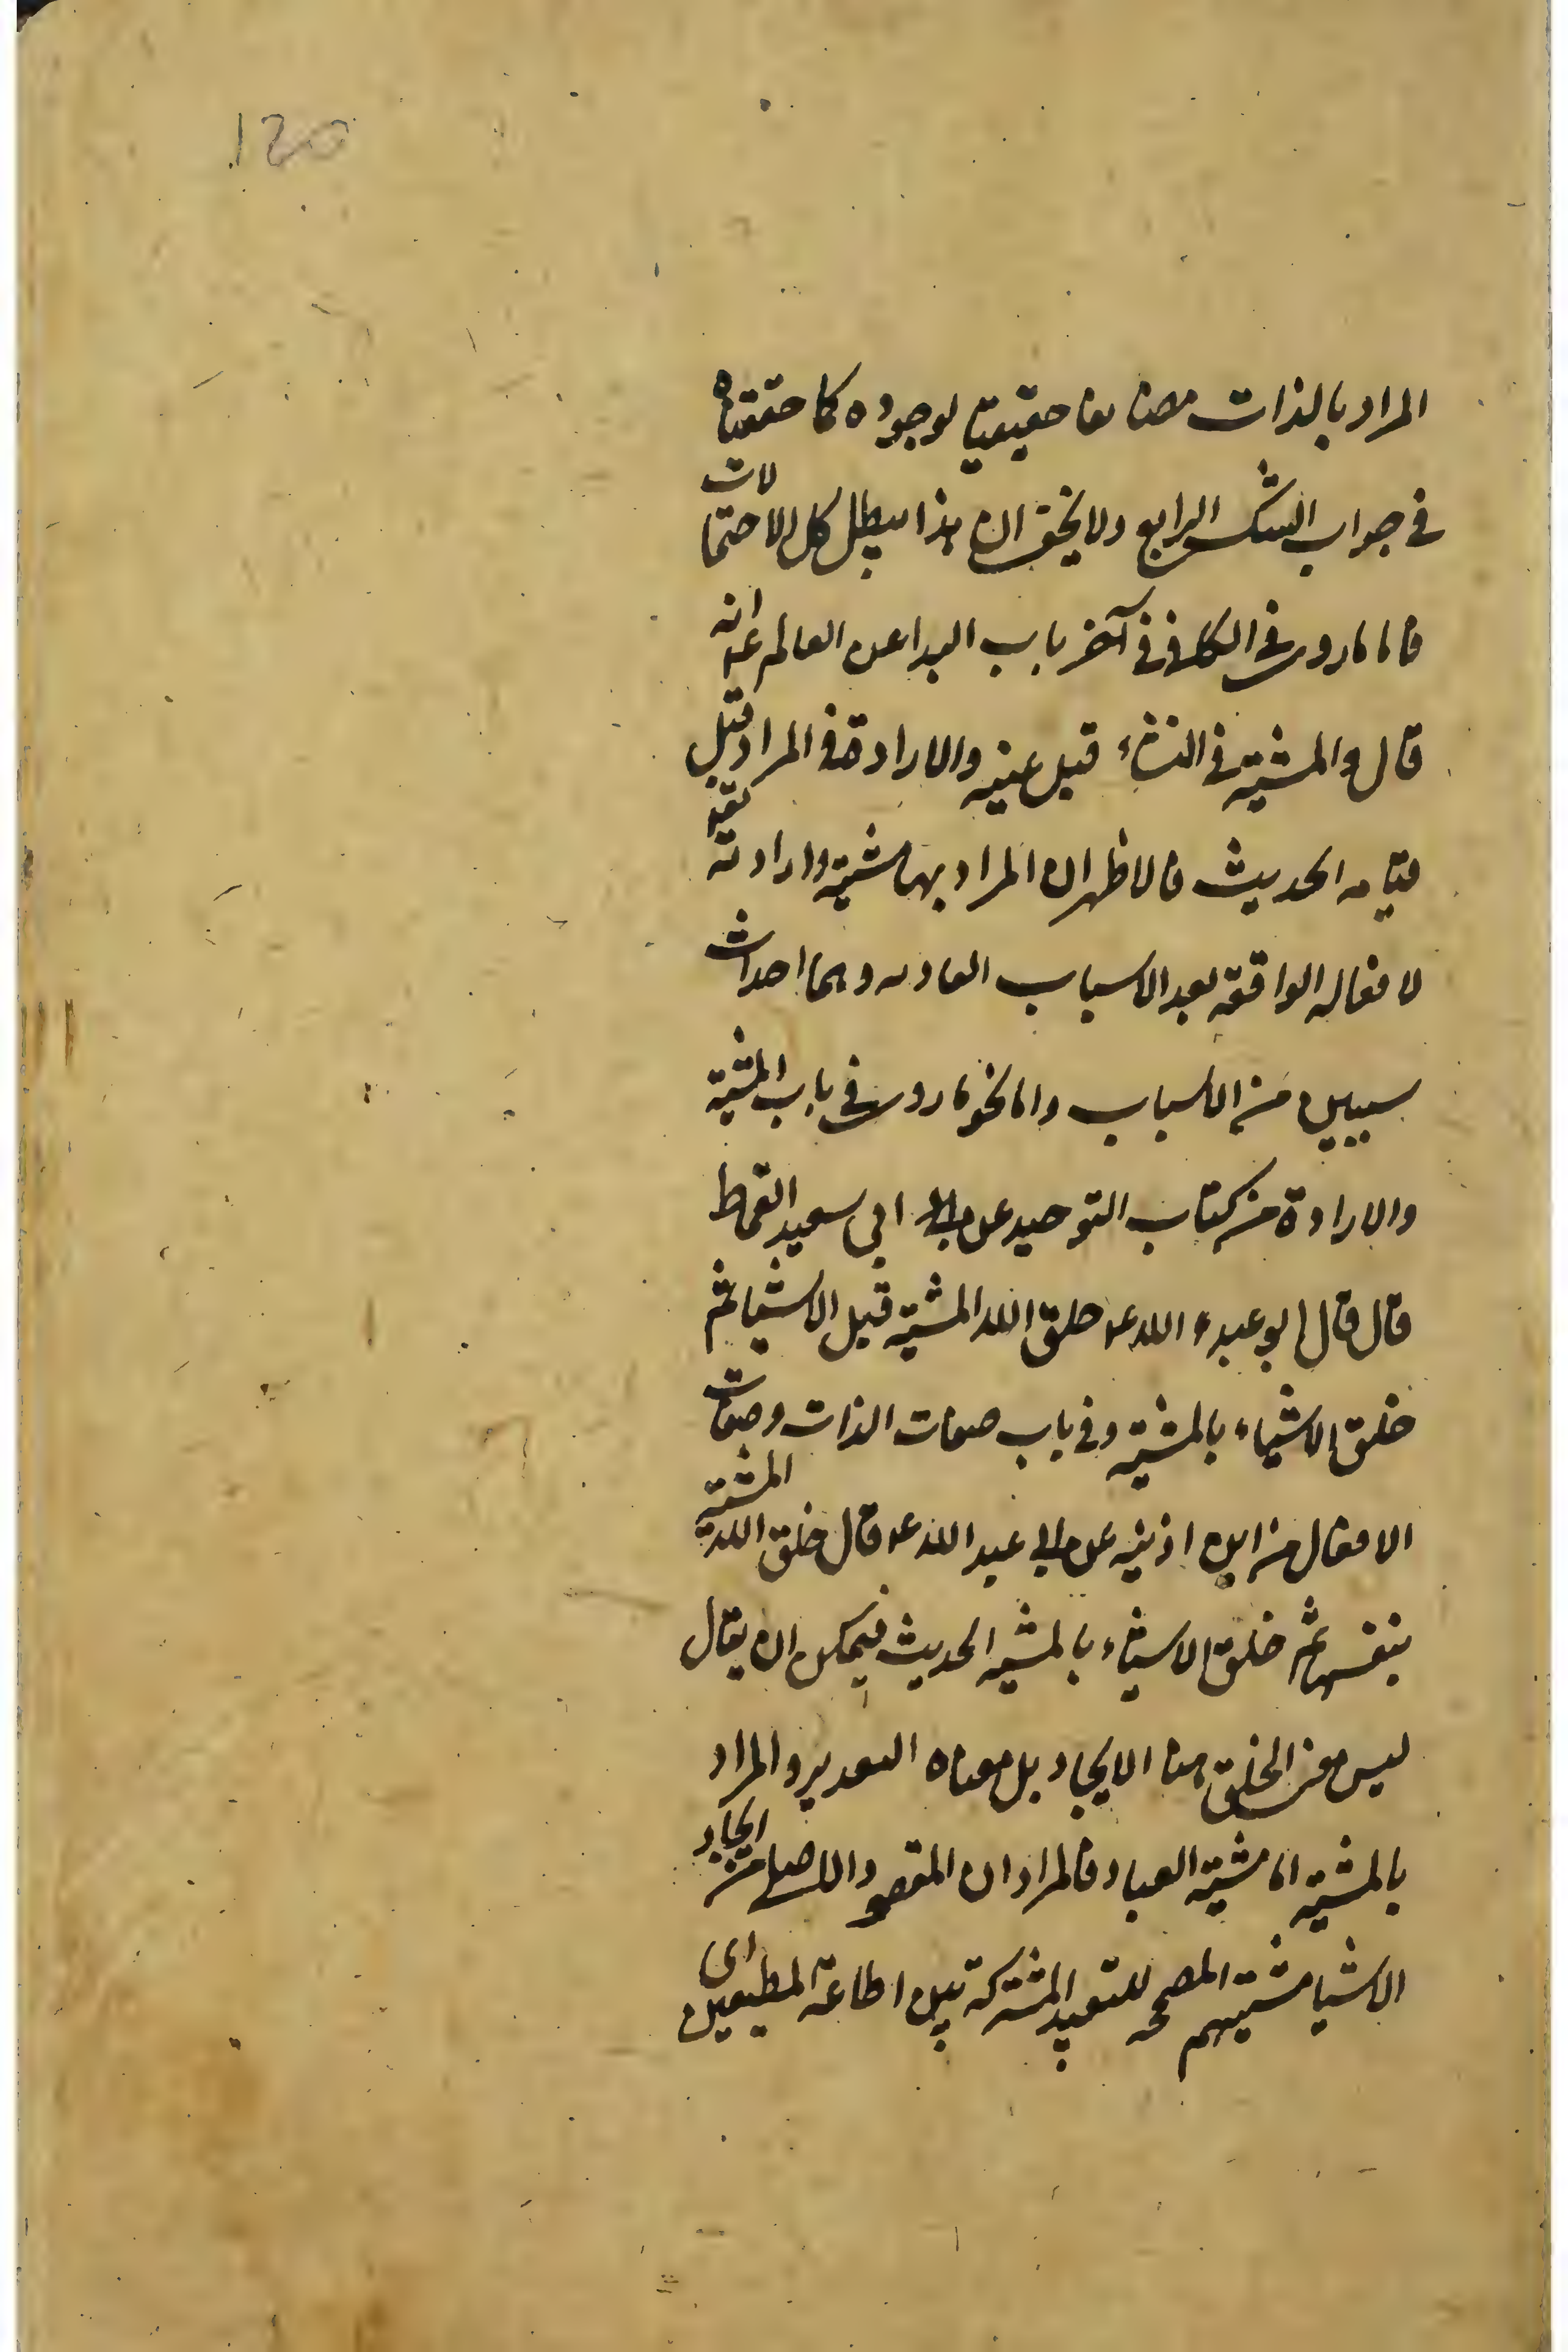 120
المراد بالذات مضايفا حقيقيا لوجوده كما حققناه
في جواب الشك الرابع ولا يخفى ان هذا يبطل كل الاحتمالات
فاما ما روى في الكافي في آخر باب البدا عن العالم ع انه
قال والمشية في المنشاء قبل عينه والارادة في المراد قبل
قيامه الحديث فالاظهر ان المراد بهما مشيته وارادته تعـ
لافعاله الواقعة بعد الاسباب العاديه وهما احداث
سببين من الاسباب واما نحو ما روى في باب المشية
والارادة من كتاب التوحيد عن ابي سعيد القماط
قال قال ابو عبد الله ع خلق الله المشية قبل الاشيا ثم
خلق الاشياء بالمشية وفي باب صفات الذات وصفات
الافعال من ابن اذينه عن ابي عبد الله ع قال خلق الله المشية
بنفسها ثم خلق الاشياء بالمشيه الحديث فيمكن ان يقال
ليس معنى الخلق هنا الايجاد بل معناه التقدير والمراد
بالمشية اما مشية العباد فالمراد ان المقصود الاصلى من ايجاد
الاشيا مشيتهم المصححه للتعبد المشتركة بين اطاعة المطيعين اى